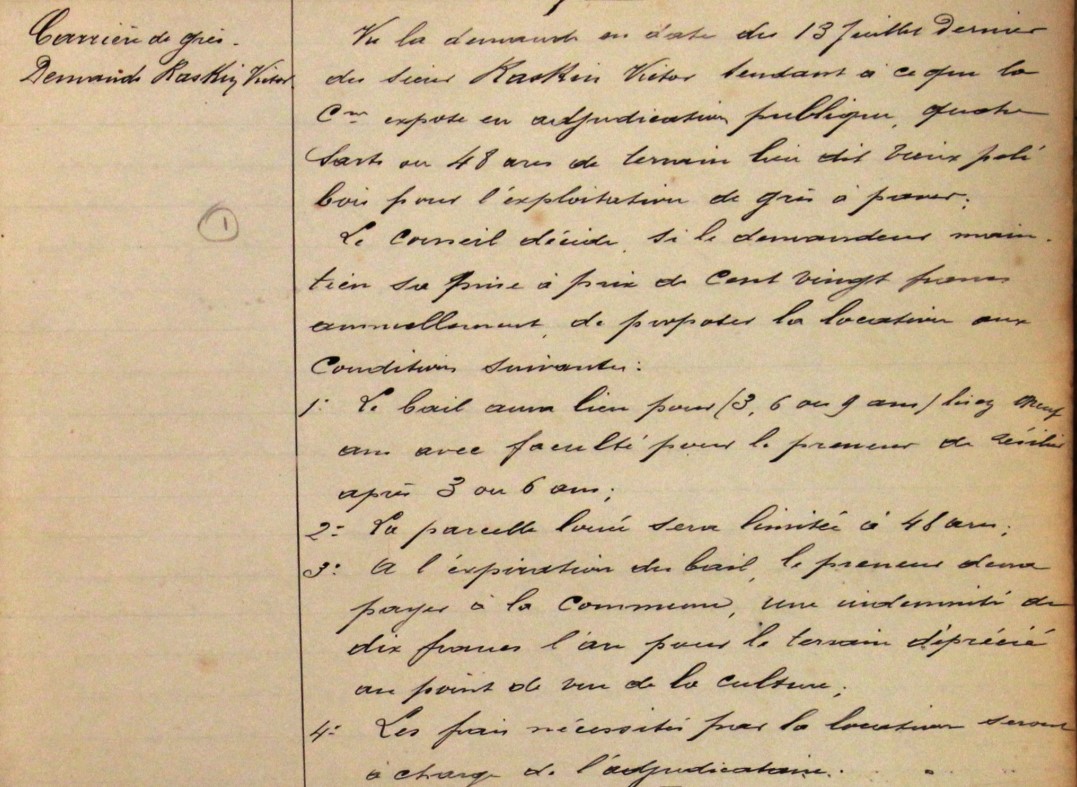 Carrière de grès.
Demande Raskin Victor
1
Vu la demande en date du 13 Juillet dernier
du sieur Raskin Victor tendant à ce que la
Cne expose en adjudication publique, quatre
Sarts ou 48 ares de terrain lieu dit vieux
bois pour l'exploitation de grès à paver;
Le Conseil décide, si le demandeur main-
tien sa prise à prix de Cent vingt francs
annuellement, de proposer la location aux
Conditions suivantes:
1° Le bail aura lieu pour (3, 6 ou 9 ans) neuf
ans avec faculté pour le preneur de résilier
après 3 ou 6 ans;
2° La parcelle louée sera limitée à 48 ares;
3° A l'expiration du bail, le preneur devra
payer à la Commune, une indemnité de
dix francs l'an pour le terrain déprécié
au point de vue de la culture;
4° Les frais nécessités par la location seront
à charge de l'adjudicataire.